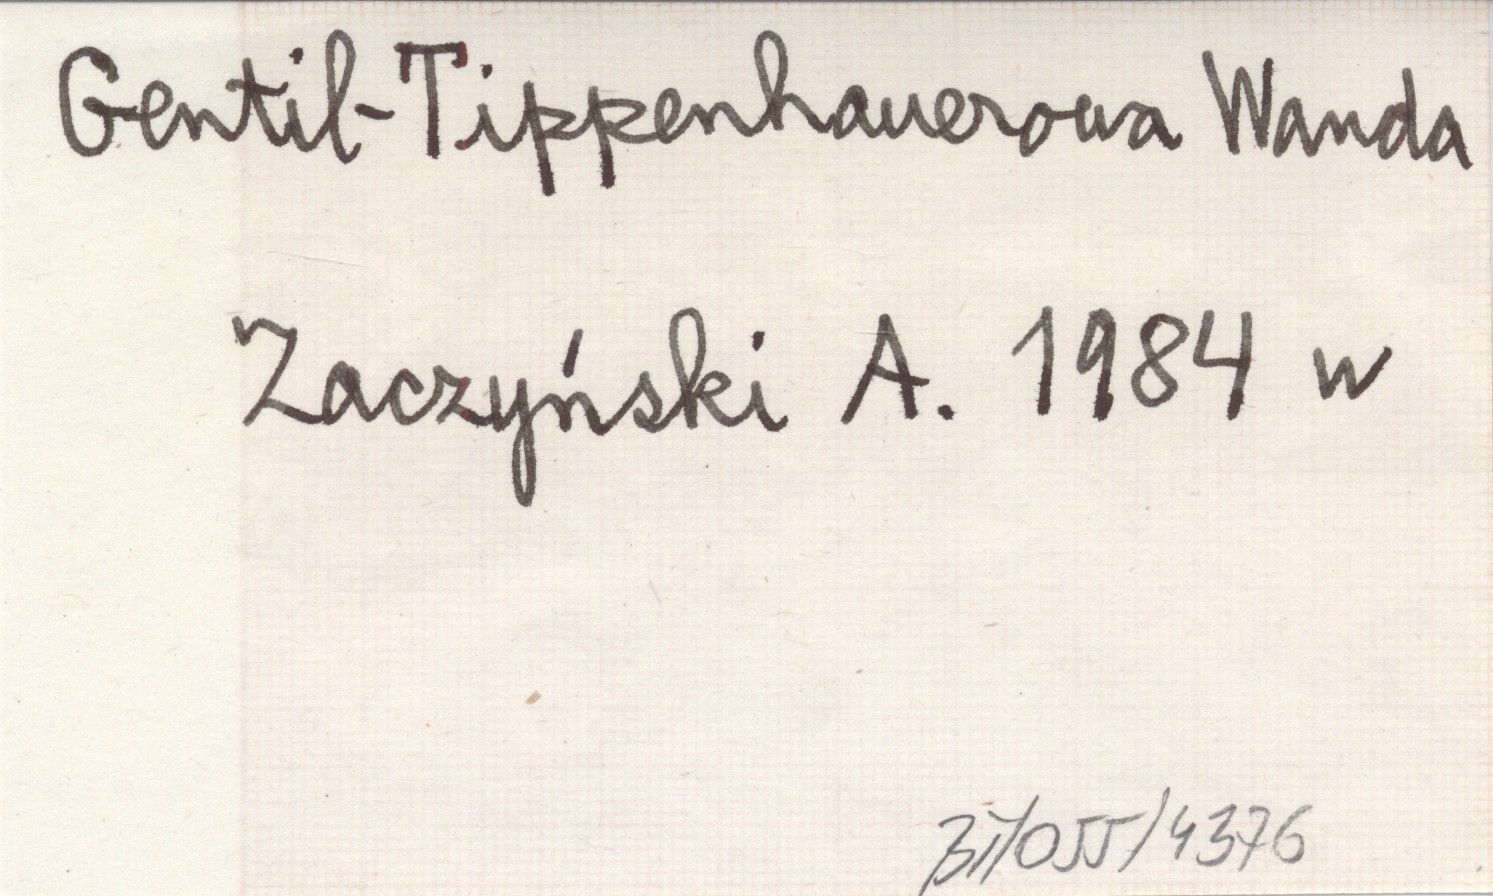 Gentil-Tippenhauerowa Wanda
Zaczyński A. 1984 w
BI/055/4376